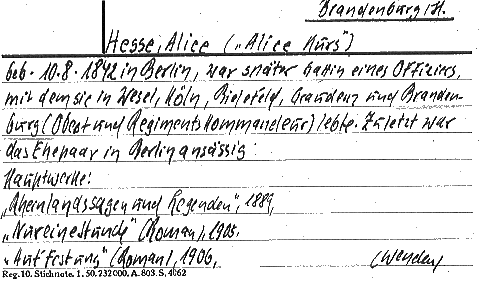 Brandenburg/H.
Hesse, Alice („Alice Kurs")
geb. 10.8.1842 in Berlin, war später Gattin eines Offiziers,
mit dem sie in Wesel, Köln, Bielefeld, Graudenz und Branden-
burg (Oberst und Regimentskommandeur) lebte. Zuletzt war
das Ehepaar in Berlin ansässig.
Hauptwerke:
„Rheinlandssagen und Legenden", 1889,
„Nur eine Stunde" (Roman), 1905.
„Auf Festung" (Roman), 1906,
(Wenden)
Reg. 10. Stichnote. 1. 50. 232000. A. 803. S. 4062